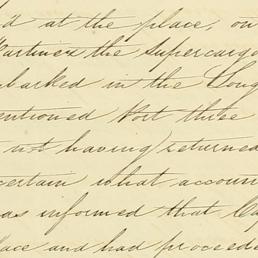 d at the place, on
Martinez the Supercargo
barked in the Long
entioned Port three
not having returned
certain what accoun
as informed that Ca
lace and had proceede